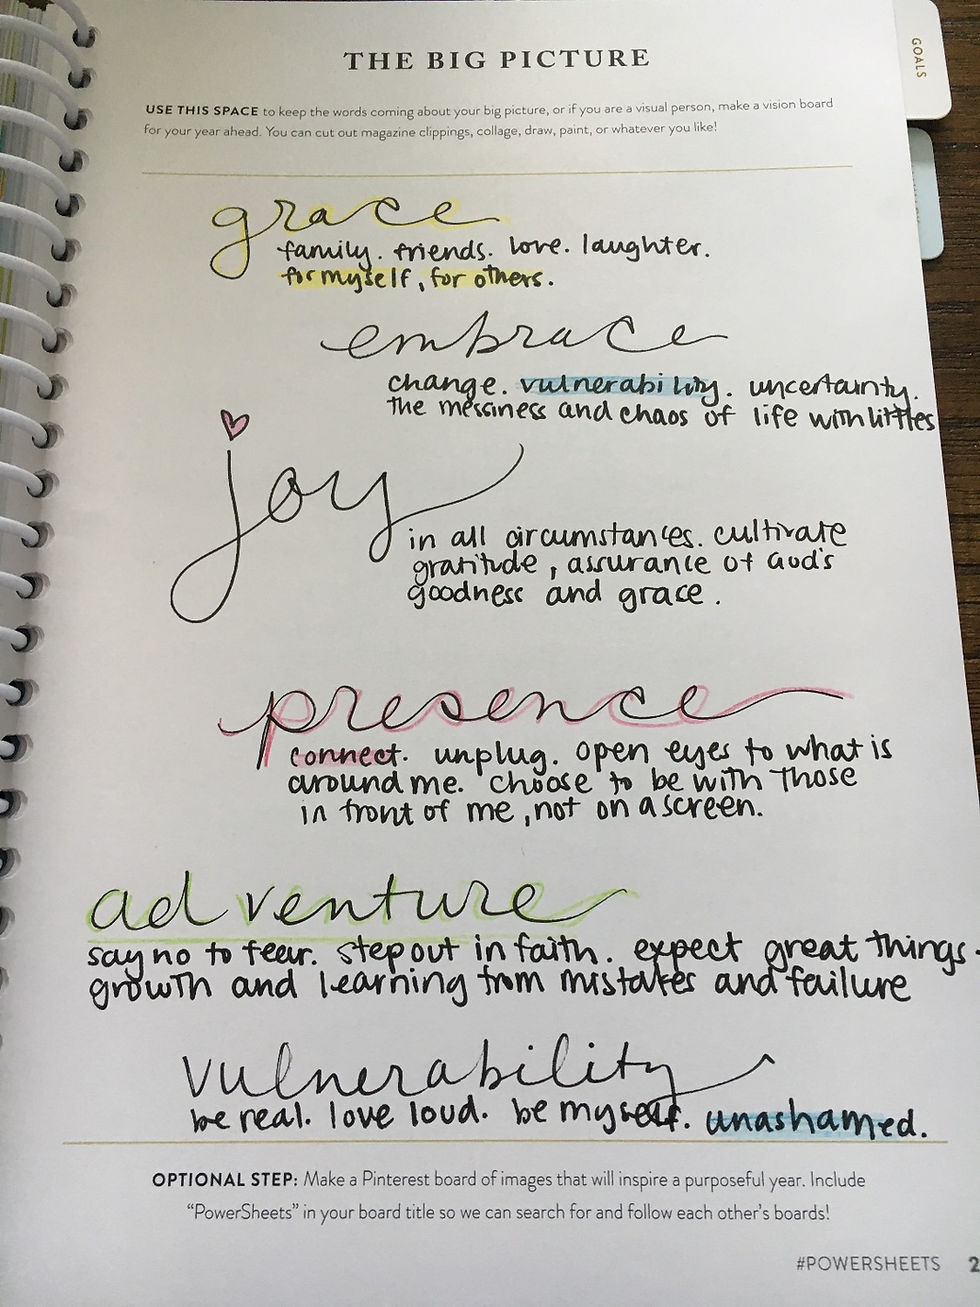 GOALS
THE BIG PICTURE
USE THIS SPACE to keep the words coming about your big picture, or if you are a visual person, make a vision board
for your year ahead. You can cut out magazine clippings, collage, draw, paint, or whatever you like!
grace
family. friends. love. laughter.
for myself, for others.
embrace
change. vulnerability. uncertainty.
the messiness and chaos of life with littles
joy
in all circumstances. cultivate
gratitude, assurance of God's
goodness and grace.
presence
connect. unplug. open eyes to what is
around me. choose to be with those
in front of me, not on a screen.
adventure
say no to fear. step out in faith. expect great things.
growth and learning from mistakes and failure
vulnerability
be real. love loud. be myself. unashamed.
OPTIONAL STEP: Make a Pinterest board of images that will inspire a purposeful year. Include
“PowerSheets” in your board title so we can search for and follow each other's boards!
#POWERSHEETS 2